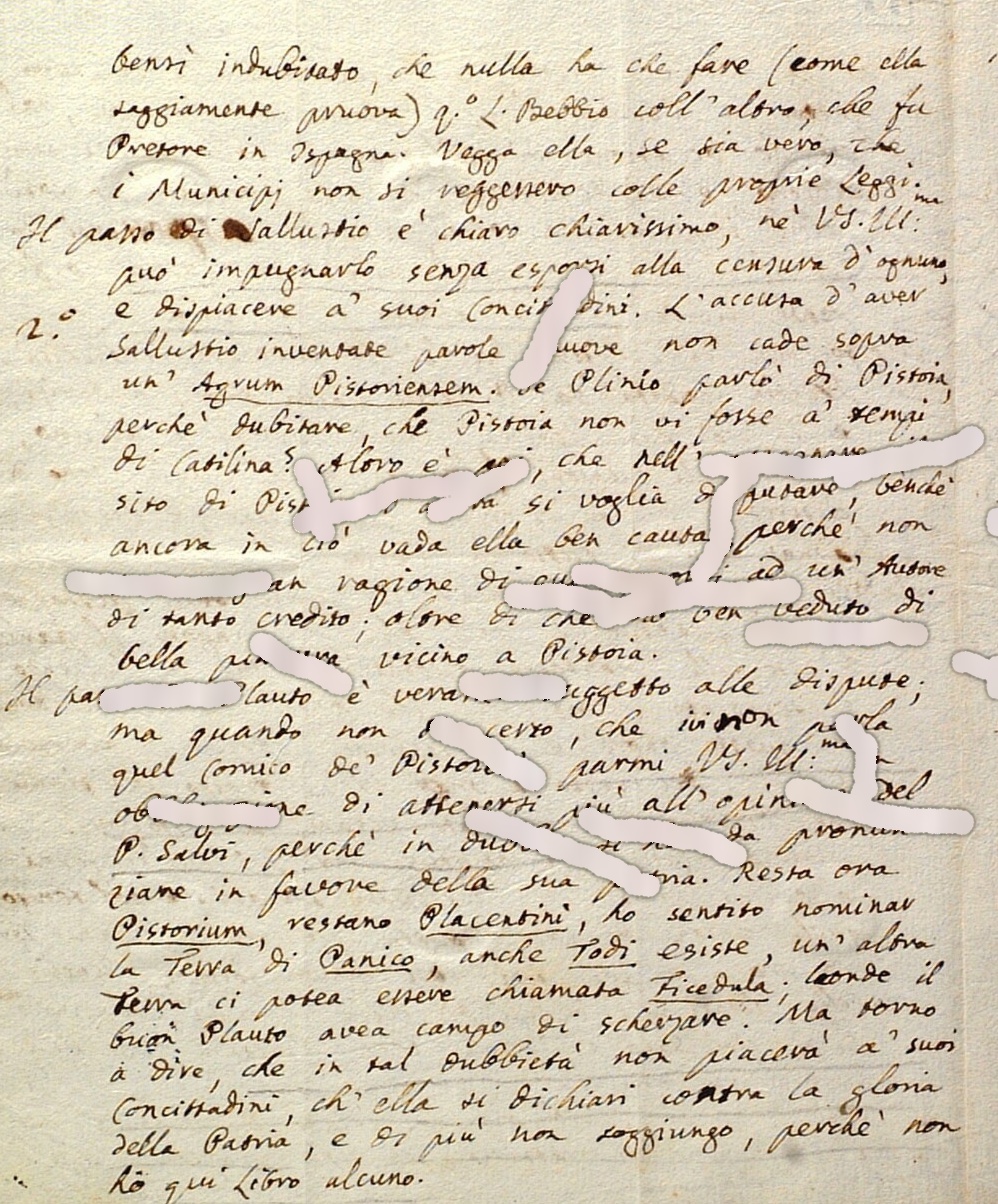 bensì indubitato, che nulla ha che fare (come ella
saggiamente pruova) q.º L. Bebbio coll' altro, che fu
Pretore in Ispagna. Vegga ella, se sia vero, che
i Municipj non si reggessero colle proprie Leggi.
Il passo di Sallustio è chiaro chiarissimo, nè VS. Ill:ma
può impugnarlo senza esporsi alla censura d'ognuno,
e dispiacere a' suoi dini. L'accusa d'aver
2.º
Sallustio inventate parole nuove non cade sopra
un' Agrum Pistoriensem. Se Plinio parlò di Pistoia,
perchè dubitare, che Pistoia non vi fosse a' tempi
di Catilina? Altro è, che nell'
sito di si voglia, benchè
ancora in ciò vada ella ben cauta, perchè non
ragione di ad un' Autore
di tanto credito; oltre di che ben veduto di
bella vicino a Pistoia.
Il Plauto è alle dispute;
ma quando non certo, che ivi non parla
quel Comico de' parmi VS. Ill:ma
di attenersi più all' del
P. Salvi, perchè in si da pronun
ziare in favore della sua. Resta ora
Pistorium, restano Placentini, ho sentito nominar
la Terra di Panico, anche Todi esiste, un' altra
Terra ci potea essere chiamata Ficedula; laonde il
buon Plauto avea campo di scherzare. Ma torno
a dire, che in tal dubbietà non piacerà a' suoi
Concittadini, ch' ella si dichiari contra la gloria
della Patria, e di più non soggiungo, perchè non
hò qui Libro alcuno.